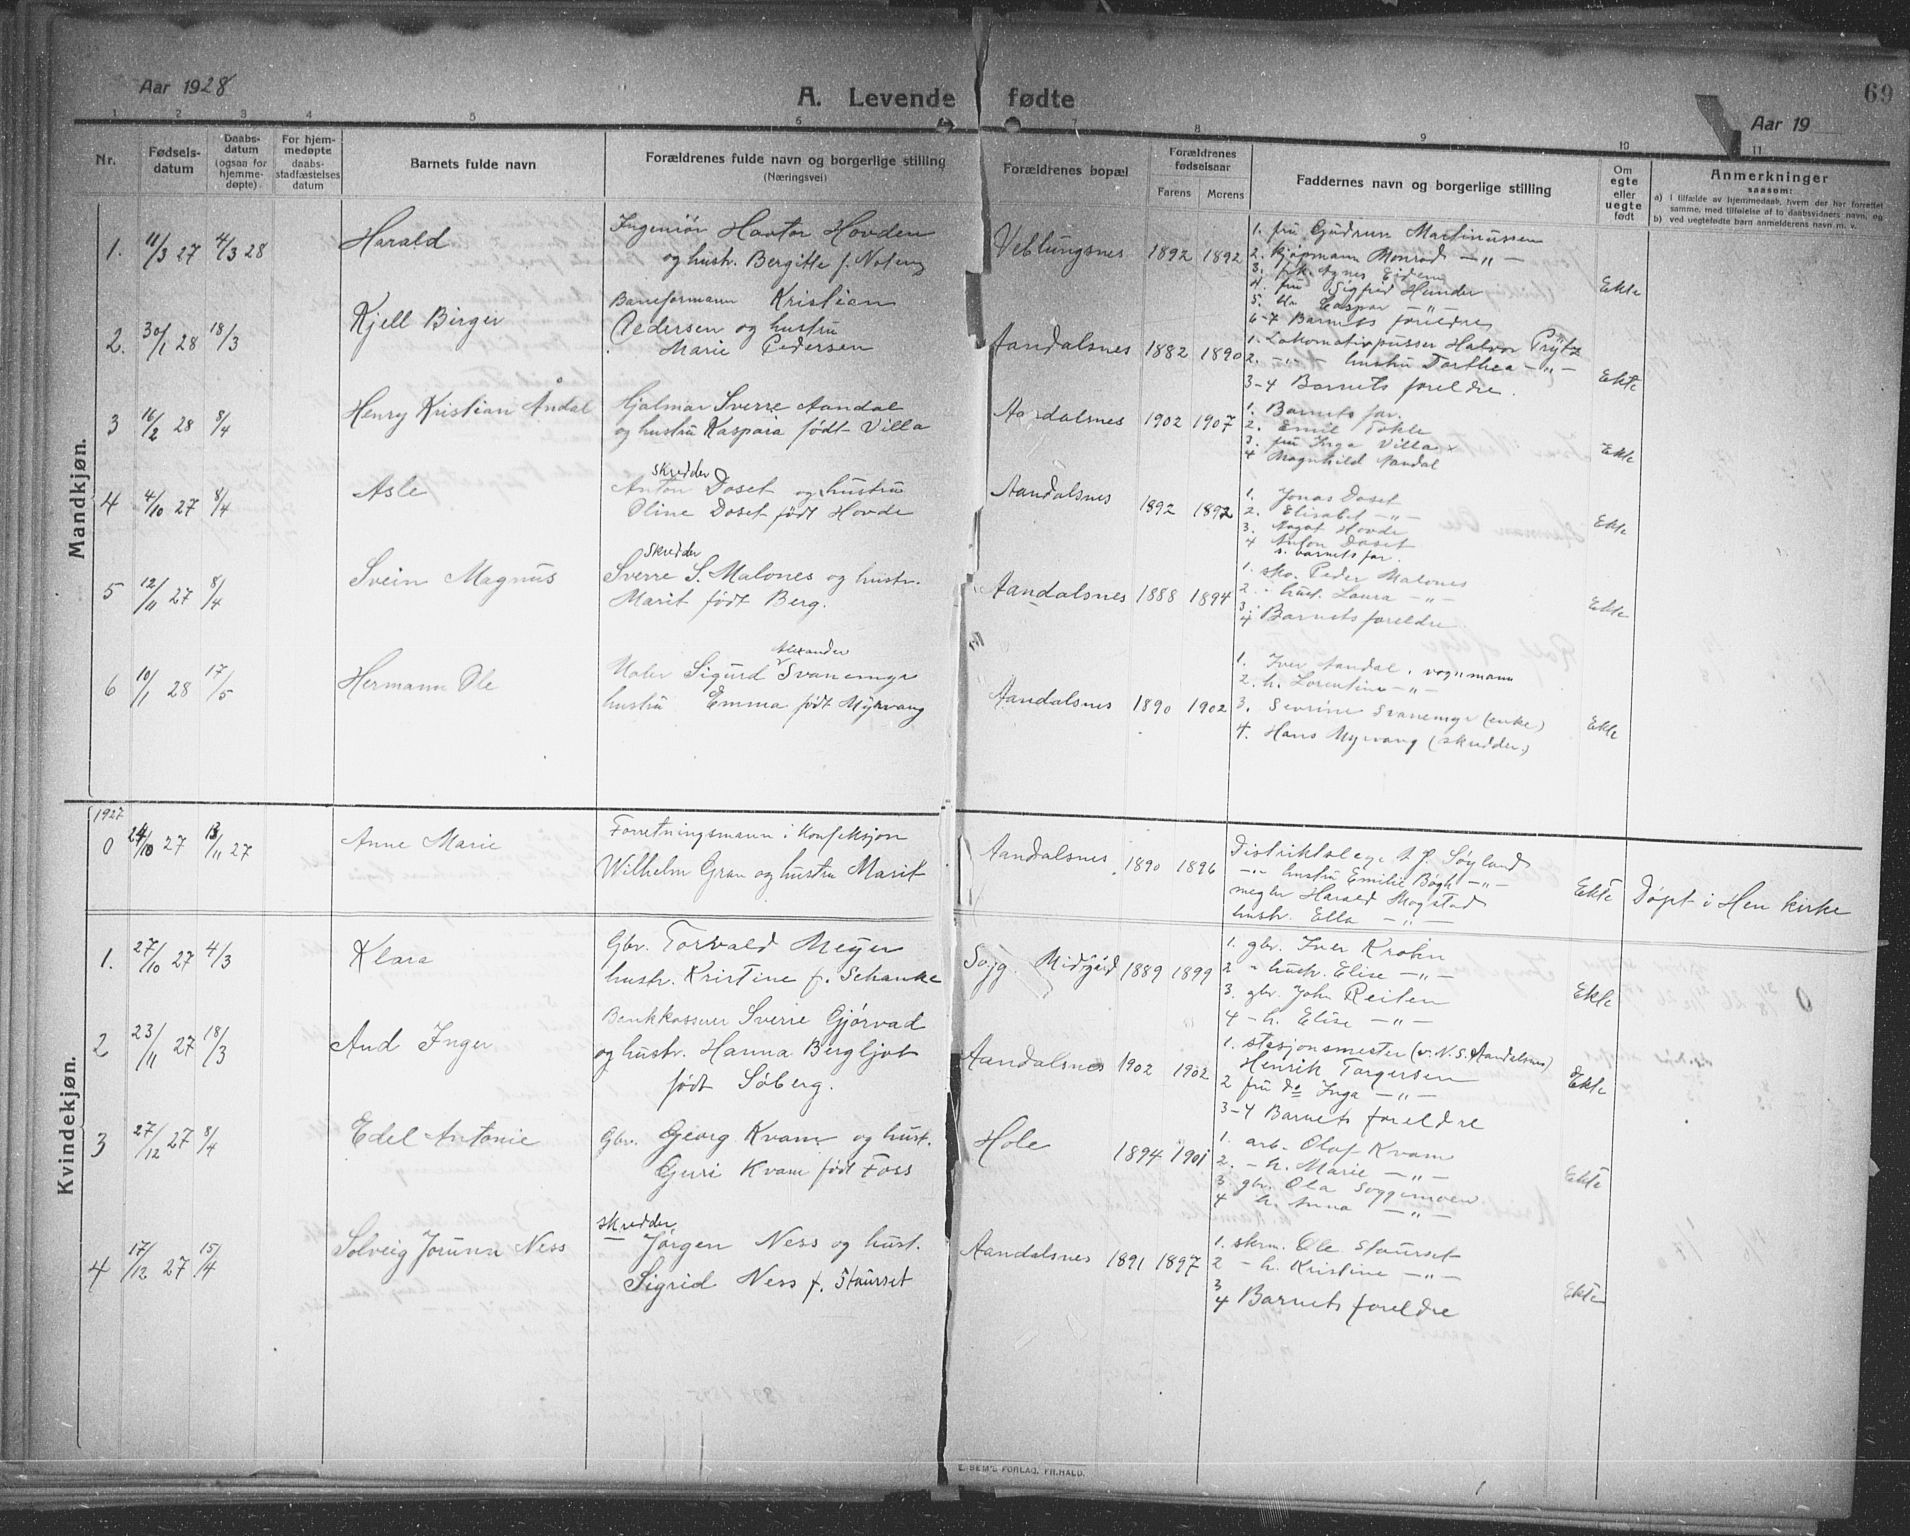 Aar 1928
A. Levende fødte
69
Aar 19
1 2 3 4 5 6 7 8 9 10 11
Nr.
Fødsels-
datum
Daabs-
datum
(ogsaa for
hjemme-
døpte).
For hjem-
medøpte
daabs-
stadfæstelses
datum
Barnets fulde navn
Forældrenes fulde navn og borgerlige stilling
(Næringsvei)
Forældrenes bopæl
Forældrenes
fødselsaar
Farens Morens
Faddernes navn og borgerlige stilling
Om
egte
eller
uegte
født
Anmerkninger
saasom:
a) I tilfælde av hjemmedaab, hvem der har forrettet
samme, med tilføielse av to daabsvidners navn, og
b) ved uegtefødte barn anmelderens navn m. v.
Mandkjøn.
1. 11/3 27 4/3 28
Harald
Ingeniør Hovden
og hustr. Bergitte f.
Veblungsnes 1892 1892
1. fru Gudrun Martinussen
2. kjøpmann Monrad – " –
3. frk. Agnes Eidem
4. fru Sigfrid Hunder
5. hr. Caspar – " –
6-7 Barnets foreldre
Ekte
2. 30/1 28 18/3
Kjell Birger
Baneformann Kristian
Pedersen og hustru
Marie Pedersen
Aandalsnes 1882 1890
1. Lokomotivpusser Halvor Prÿtz
2. – " – hustru Dorthea – " –
3-4 Barnets foreldre.
Ekte
3 16/2 28 8/4
Henry Kristian Åndal
Hjalmar Sverre Aandal
og hustru Kaspara født Villa
Aandalsnes 1902 1907
1. Barnets far.
2. Emil Tokle
3. fru Inga Villa
4 Magnhild Aandal
Ekte
4 4/10 27 8/4
Asle
skredder
Anton Doset og hustru
Oline Doset født Hovde
Aandalsnes 1892 1892
1. Jonas Doset
2. Elisabet – " –
3. Hovde
4 Anton Doset
s. barnets far.
Ekte
5 12/11 27 8/4
Svein Magnus
Skredder
Sverre S. Malones og hustr.
Marit født Berg.
Aandalsnes 1888 1894
1. sko. Peder Malones
2. - hust. Laura – " –
3.
4 Barnets foreldre
Ekte
6 10/1 28 17/5
Hermann Ole
Alexander
Maler Sigurd Svanemyr
hustru Emma født Myrvang
Aandalsnes 1890 1902
1. Iver Aandal, vognmann
2. h. Lorentine – " –
3. Sevrine Svanemyr (enke)
4. Hans Myrvang (skredder)
Ekte
Kvindekjøn.
1927
0 24/10 27 13/11 27
Anne Marie
Forretningsmann i Konfeksjon
Wilhelm Gran og hustru Marit
Aandalsnes 1890 1896
Distriktslege Søyland
– " – hustru Emilie Bøgh – " –
megler Harald Mogstad
hustr. Ella – " –
Ekte
Døpt i Hen kirke
1. 27/10 27 4/3
Klara
Gbr. Torvald Meyer
hustr. Kristine f. Schanke
Sogg. Midgård 1889 1899
1. gbr. Iver Krohn
2 - hustr. Elise – " –
3. gbr. John Reiten
4 - h. Elise – " –
Ekte
2 23/11 27 18/3
Aud Inger
Bankkasserer Sverre Gjørvad
og hustr. Hanna Bergljot
født Søberg.
Aandalsnes 1902 1902
1. stasjonsmester (v. N.S. Aandalsnes)
Henrik Torgersen
2 fru do Inga – " –
3-4 Barnets foreldre
Ekte
3 27/12 27 8/4
Edel Antonie
Gbr. Georg Kvam og hust.
Guri Kvam født Foss
Hole 1894 1901
1. arb. Olaf Kvam
2. - h. Marie – " –
3. gbr. Ola Soggemoen
4 h. Anna – " –
Ekte
4 17/12 27 15/4
Solveig Jorunn Ness
skredder
Jørgen Ness og hust.
Sigrid Ness f. Staurset
Aandalsnes 1891 1897
1. skrm. Ole Staurset
2 - h. Kristine – " –
3
4 Barnets foreldre
Ekte
E. SEM'S FORLAG, FR.HALD.